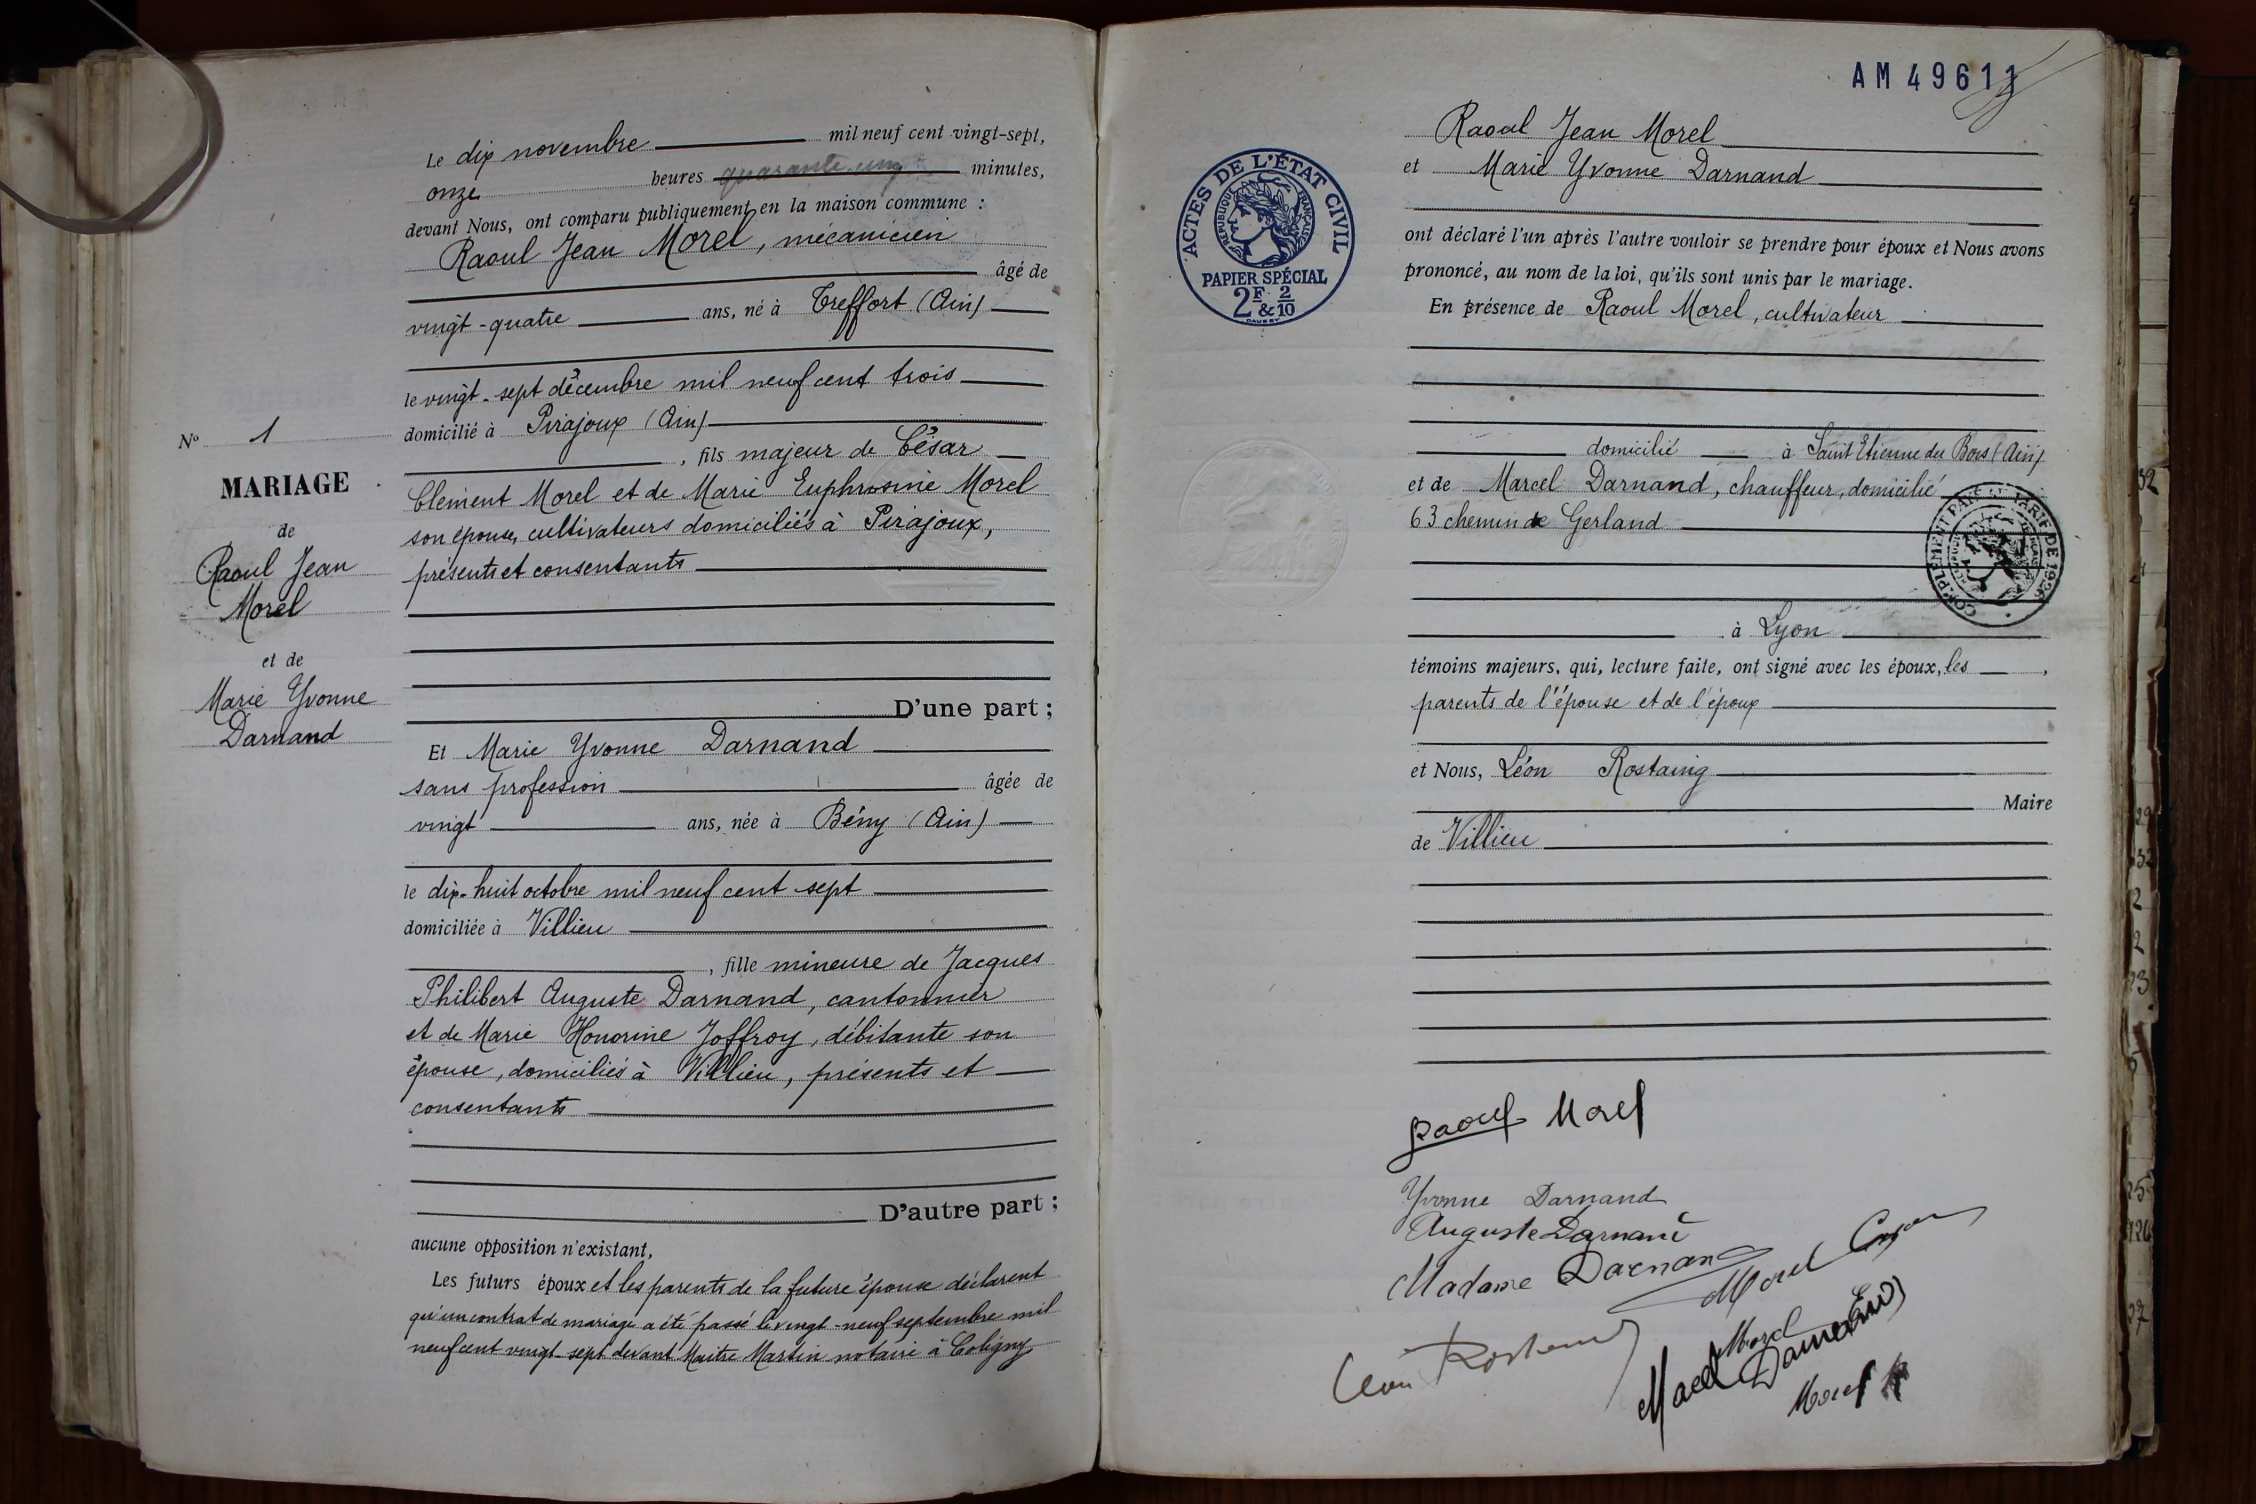 Le dix novembre mil neuf cent vingt-sept,
onze heures minutes,
devant Nous, ont comparu publiquement en la maison commune :
Raoul Jean Morel, mécanicien
âgé de
vingt-quatre ans, né à Treffort (Ain)
le vingt-sept décembre mil neuf cent trois
domicilié à Pirajoux (Ain)
, fils majeur de César
Clément Morel et de Marie Euphrosine Morel
son épouse, cultivateurs domiciliés à Pirajoux,
présents et consentants
D'une part ;
Et Marie Yvonne Darnand
sans profession âgée de
vingt ans, née à Bény (Ain)
le dix-huit octobre mil neuf cent sept
domiciliée à Villieu
, fille mineure de Jacques
Philibert Auguste Darnand, cantonnier
et de Marie Honorine Joffroy, débitante son
épouse, domiciliés à Villieu, présents et
consentants
D'autre part ;
aucune opposition n'existant,
Les futurs époux et les parents de la future épouse déclarent
qu'un contrat de mariage a été passé le vingt-neuf septembre mil
neuf cent vingt-sept devant Maître Martin notaire à Coligny
No 1
MARIAGE
de
Raoul Jean
Morel
et de
Marie Yvonne
Darnand
AM 49611
ACTES DE L'ÉTAT CIVIL
RÉPUBLIQUE FRANÇAISE
PAPIER SPÉCIAL
2F & 2/10
Raoul Jean Morel
et Marie Yvonne Darnand
ont déclaré l'un après l'autre vouloir se prendre pour époux et Nous avons
prononcé, au nom de la loi, qu'ils sont unis par le mariage.
En présence de Raoul Morel, cultivateur
domicilié à Saint Etienne du Bois (Ain)
et de Marcel Darnand, chauffeur, domicilié
63 chemin de Gerland
à Lyon
témoins majeurs, qui, lecture faite, ont signé avec les époux, les ,
parents de l'épouse et de l'époux
et Nous, Léon Rostaing
Maire
de Villieu
Raoul Morel
Yvonne Darnand
Auguste Darnand
Madame Darnand
Morel
Léon Rostaing
Morel
Darnand
Morel